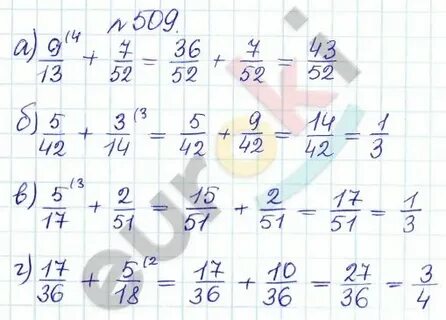 №509.
а) 9/13 (4 + 7/52 = 36/52 + 7/52 = 43/52
б) 5/42 + 3/14 (3 = 5/42 + 9/42 = 14/42 = 1/3
в) 5/17 (3 + 2/51 = 15/51 + 2/51 = 17/51 = 1/3
г) 17/36 + 5/18 (2 = 17/36 + 10/36 = 27/36 = 3/4
euroki